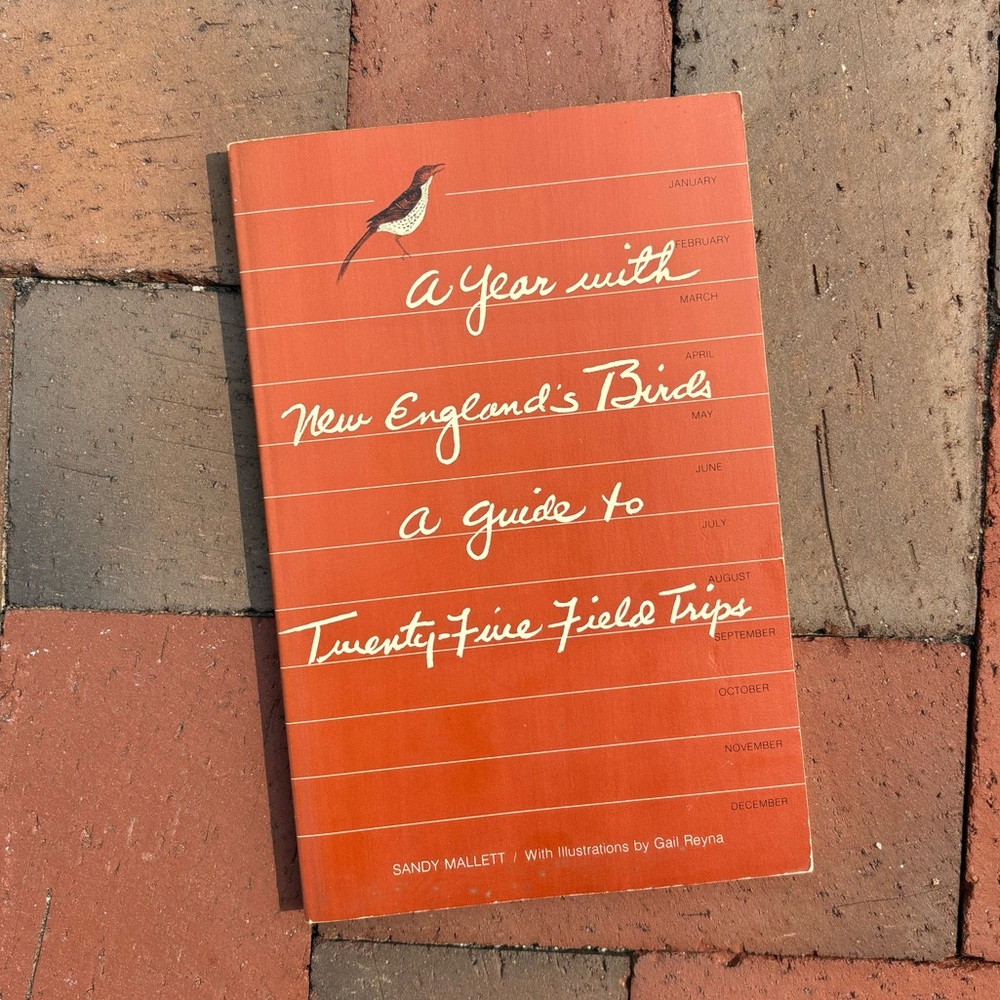 JANUARY
FEBRUARY
A Year with
MARCH
APRIL
New England's Birds
MAY
JUNE
A Guide to
JULY
AUGUST
Twenty-Five Field Trips
SEPTEMBER
OCTOBER
NOVEMBER
DECEMBER
SANDY MALLETT / With Illustrations by Gail Reyna